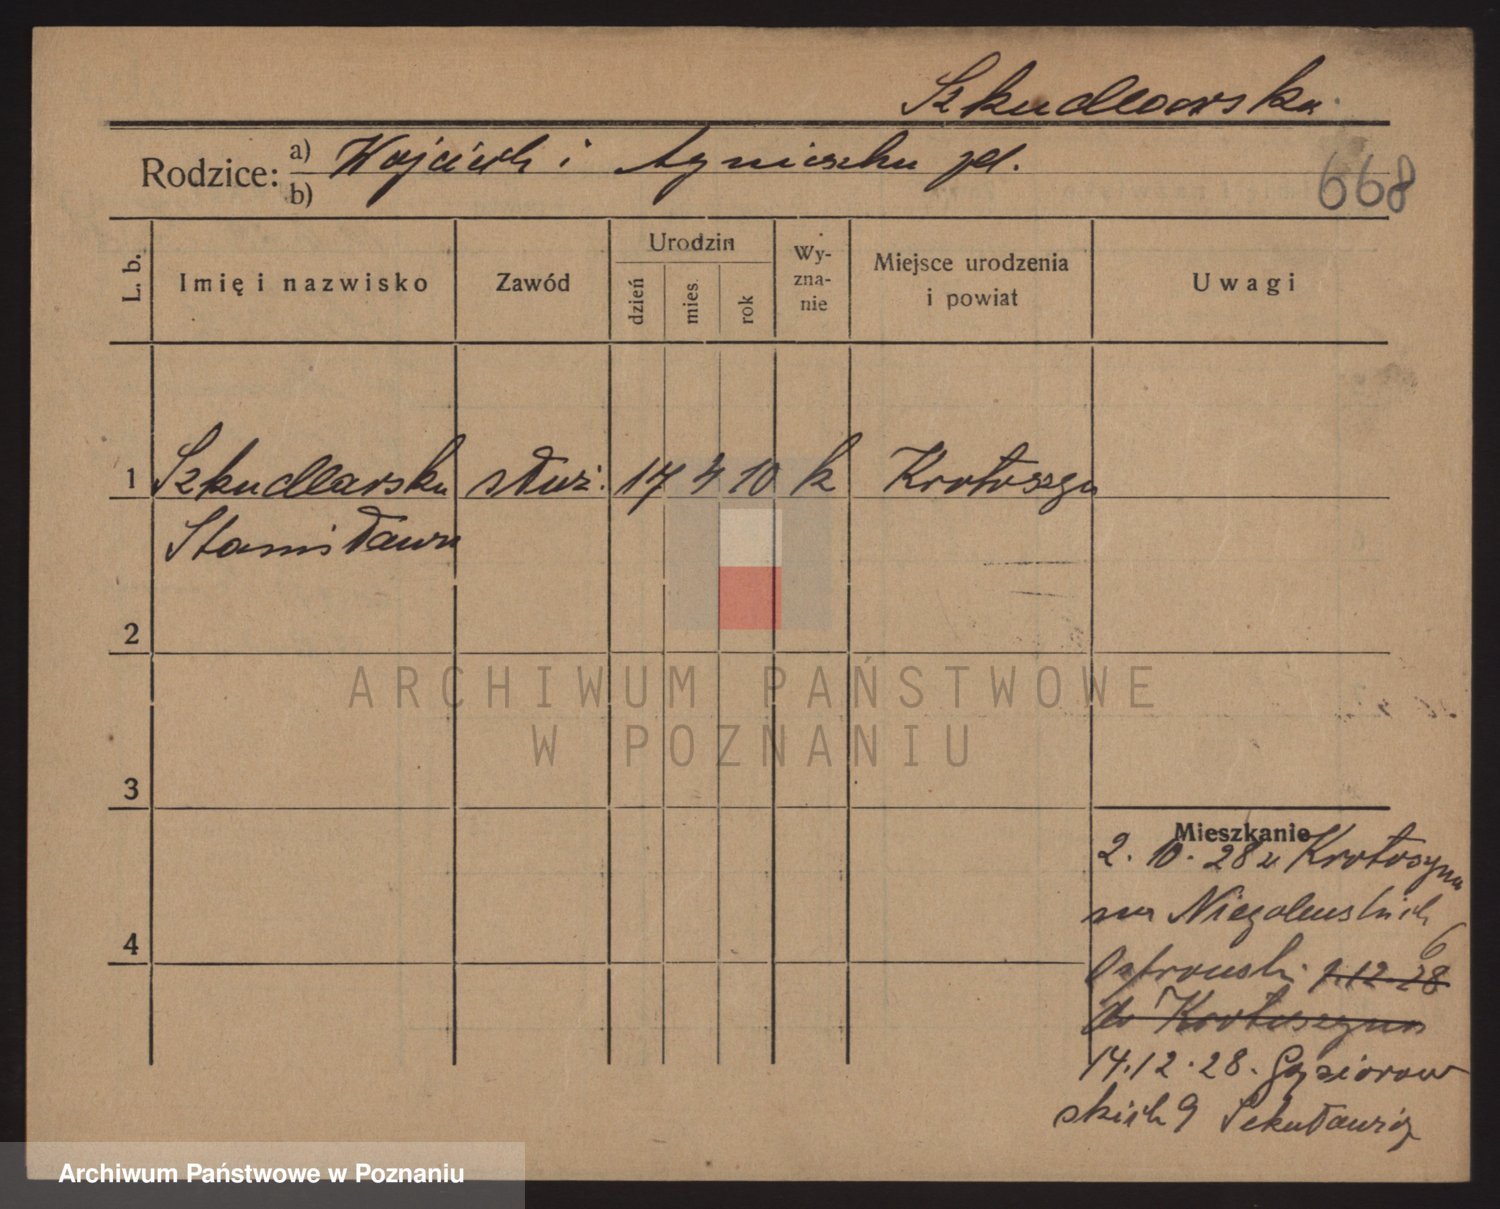 Szkudlarska
Rodzice: a) Wojciech i Agnieszka
b)
668
L. b.
Imię i nazwisko
Zawód
Urodzin
dzień
mies.
rok
Wy-
zna-
nie
Miejsce urodzenia
i powiat
Uwagi
1 Szkudlarska służ. 17 4 10 k Krotoszyn
Stanisława
2
3
4
Mieszkanie
2. 10. 28 z Krotoszyna
na Niegolewskich 6
Ostrowski 7.12.28
do Krotoszyna
14.12.28. Gąsiorow
skich 9
ARCHIWUM PAŃSTWOWE
W POZNANIU
Archiwum Państwowe w Poznaniu